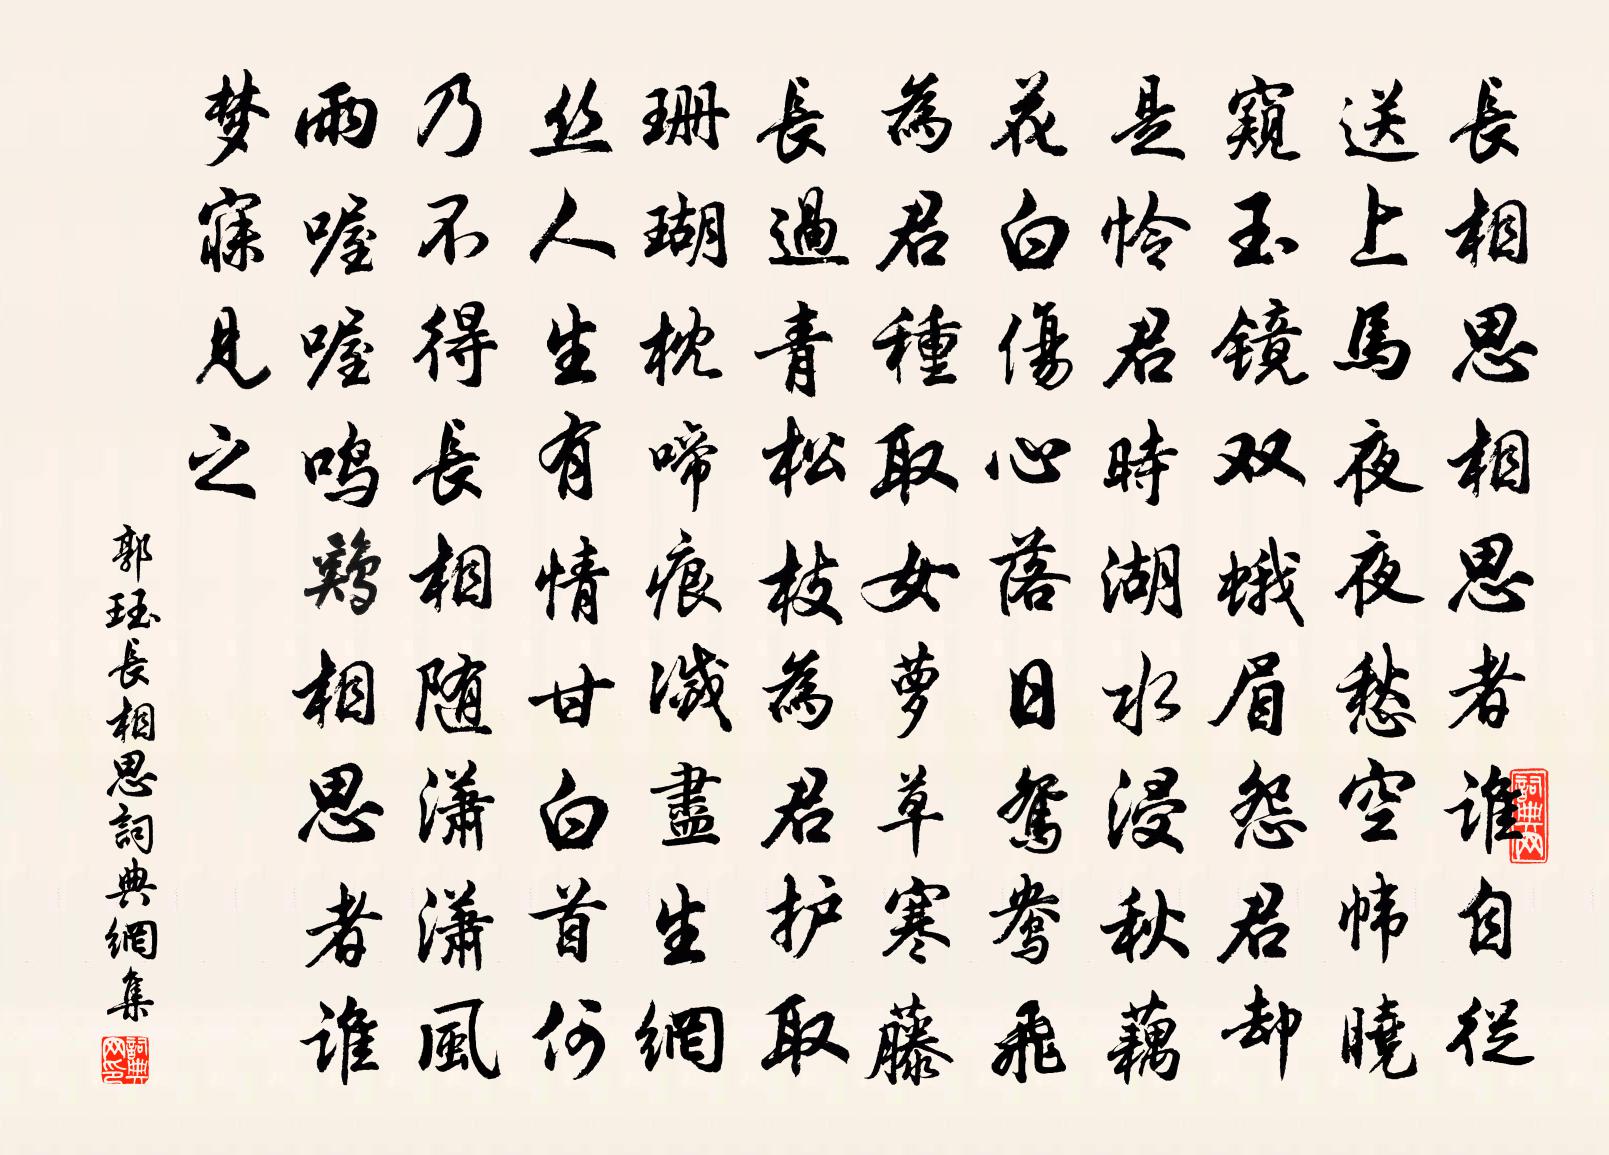 長相思相思者谁自従
送上馬夜夜愁空帏曉
窺玉镜双蛾眉怨君却
是怜君時湖水浸秋藕
花白傷心落日鸳鸯飛
為君種取女萝草寒藤
長過青松枝為君护取
珊瑚枕啼痕滅盡生網
丝人生有情甘白首何
乃不得長相随潇潇風
雨喔喔鸣鷄相思者谁
梦寐見之
郭珏長相思詞典網集
詞典网
詞典网印